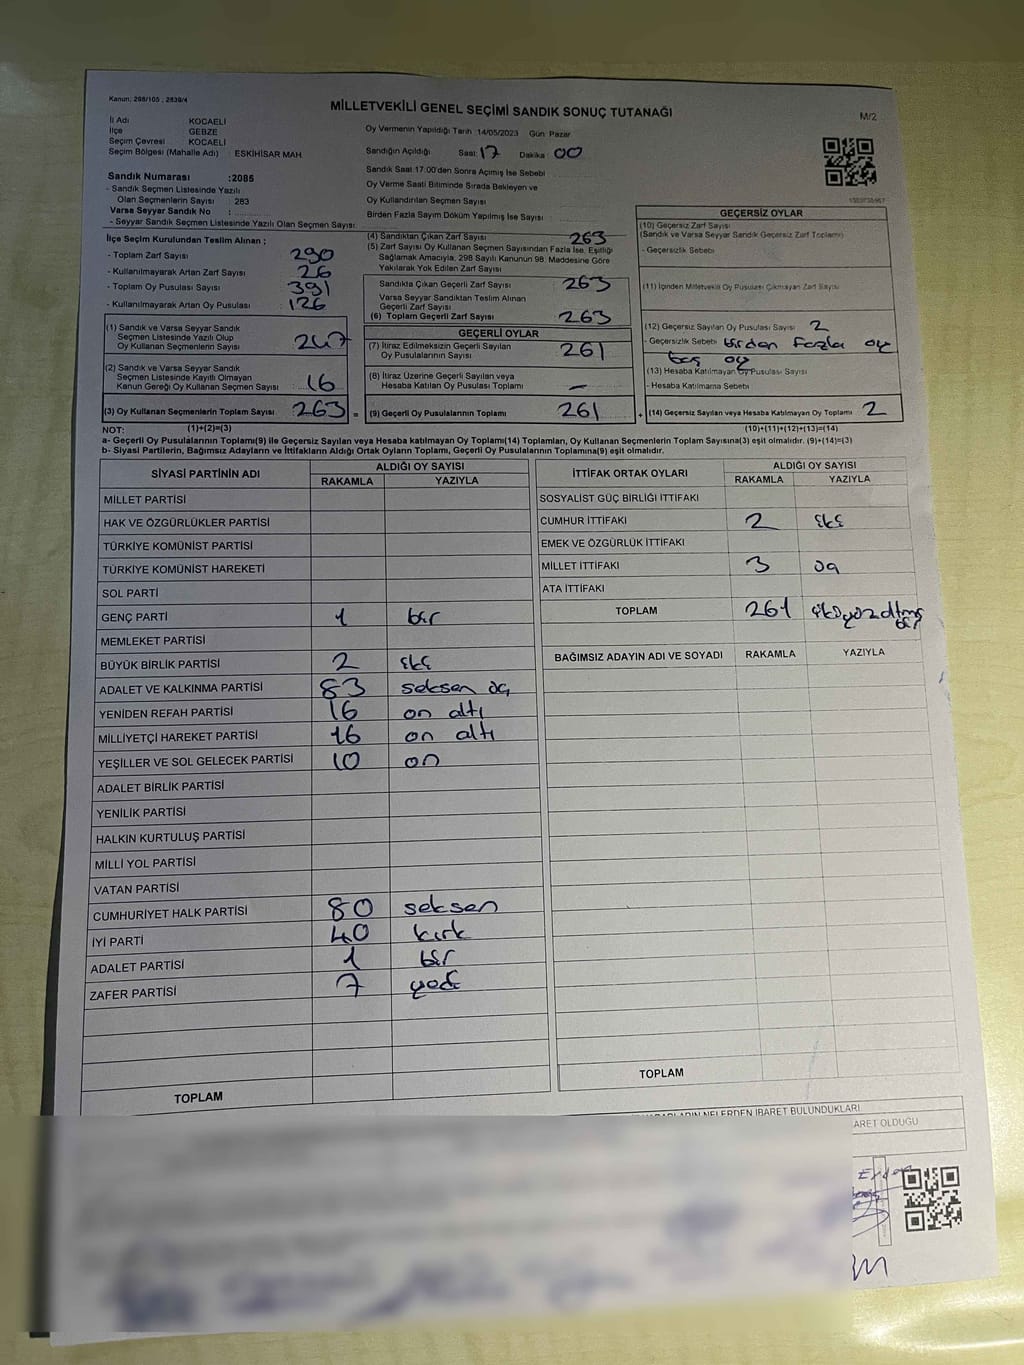 Kanun: 298/105 , 2839/4
MİLLETVEKİLİ GENEL SEÇİMİ SANDIK SONUÇ TUTANAĞI
M/2
İl Adı KOCAELİ
İlçe GEBZE
Seçim Çevresi KOCAELİ
Seçim Bölgesi (Mahalle Adı) : ESKİHİSAR MAH.
Sandık Numarası :2085
- Sandık Seçmen Listesinde Yazılı
Olan Seçmenlerin Sayısı : 283
Varsa Seyyar Sandık No :
- Seyyar Sandık Seçmen Listesinde Yazılı Olan Seçmen Sayısı:
Oy Vermenin Yapıldığı Tarih 14/05/2023 Gün Pazar
Sandığın Açıldığı Saat 17 Dakika 00
Sandık Saat 17:00'den Sonra Açımış İse Sebebi
Oy Verme Saati Bitiminde Sırada Bekleyen ve
Oy Kullandırılan Seçmen Sayısı
Birden Fazla Sayım Döküm Yapılmış İse Sayısı
İlçe Seçim Kurulundan Teslim Alınan ;
- Toplam Zarf Sayısı 290
- Kullanılmayarak Artan Zarf Sayısı 26
- Toplam Oy Pusulası Sayısı 391
- Kullanılmayarak Artan Oy Pusulası 126
(1) Sandık ve Varsa Seyyar Sandık
Seçmen Listesinde Yazılı Olup
Oy Kullanan Seçmenlerin Sayısı 247
(2) Sandık ve Varsa Seyyar Sandık
Seçmen Listesinde Kayıtlı Olmayan
Kanun Gereği Oy Kullanan Seçmen Sayısı 16
(3) Oy Kullanan Seçmenlerin Toplam Sayısı 263 =
(4) Sandıktan Çıkan Zarf Sayısı 263
(5) Zarf Sayısı Oy Kullanan Seçmen Sayısından Fazla İse, Eşitliği
Sağlamak Amacıyla, 298 Sayılı Kanunun 98. Maddesine Göre
Yakılarak Yok Edilen Zarf Sayısı
Sandıkta Çıkan Geçerli Zarf Sayısı 263
Varsa Seyyar Sandıktan Teslim Alınan
Geçerli Zarf Sayısı
(6) Toplam Geçerli Zarf Sayısı 263
GEÇERLİ OYLAR
(7) İtiraz Edilmeksizin Geçerli Sayılan
Oy Pusulalarının Sayısı 261
(8) İtiraz Üzerine Geçerli Sayılan veya
Hesaba Katılan Oy Pusulası Toplamı -
(9) Geçerli Oy Pusulalarının Toplamı 261 +
GEÇERSİZ OYLAR
(10) Geçersiz Zarf Sayısı
(Sandık ve Varsa Seyyar Sandık Geçersiz Zarf Toplamı)
- Geçersizlik Sebebi
(11) İçinden Milletvekili Oy Pusulası Çıkmayan Zarf Sayısı
(12) Geçersiz Sayılan Oy Pusulası Sayısı 2
- Geçersizlik Sebebi birden fazla oy
boş oy
(13) Hesaba Katılmayan Oy Pusulası Sayısı
- Hesaba Katılmama Sebebi
(14) Geçersiz Sayılan veya Hesaba Katılmayan Oy Toplamı 2
NOT: (1)+(2)=(3) (10)+(11)+(12)+(13)=(14)
a- Geçerli Oy Pusulalarının Toplamı(9) ile Geçersiz Sayılan veya Hesaba katılmayan Oy Toplamı(14) Toplamları, Oy Kullanan Seçmenlerin Toplam Sayısına(3) eşit olmalıdır. (9)+(14)=(3)
b- Siyasi Partilerin, Bağımsız Adayların ve İttifakların Aldığı Oyların Toplamı, Geçerli Oy Pusulalarının Toplamına(9) eşit olmalıdır.
SİYASİ PARTİNİN ADI ALDIĞI OY SAYISI
RAKAMLA YAZIYLA
MİLLET PARTİSİ
HAK VE ÖZGÜRLÜKLER PARTİSİ
TÜRKİYE KOMÜNİST PARTİSİ
TÜRKİYE KOMÜNİST HAREKETİ
SOL PARTİ
GENÇ PARTİ 1 bir
MEMLEKET PARTİSİ
BÜYÜK BİRLİK PARTİSİ 2 iki
ADALET VE KALKINMA PARTİSİ 83 seksen üç
YENİDEN REFAH PARTİSİ 16 on altı
MİLLİYETÇİ HAREKET PARTİSİ 16 on altı
YEŞİLLER VE SOL GELECEK PARTİSİ 10 on
ADALET BİRLİK PARTİSİ
YENİLİK PARTİSİ
HALKIN KURTULUŞ PARTİSİ
MİLLİ YOL PARTİSİ
VATAN PARTİSİ
CUMHURİYET HALK PARTİSİ 80 seksen
İYİ PARTİ 40 kırk
ADALET PARTİSİ 1 bir
ZAFER PARTİSİ 7 yedi
TOPLAM
İTTİFAK ORTAK OYLARI ALDIĞI OY SAYISI
RAKAMLA YAZIYLA
SOSYALİST GÜÇ BİRLİĞİ İTTİFAKI
CUMHUR İTTİFAKI 2 iki
EMEK VE ÖZGÜRLÜK İTTİFAKI
MİLLET İTTİFAKI 3 üç
ATA İTTİFAKI
TOPLAM 261 ikiyüzaltmış
bir
BAĞIMSIZ ADAYIN ADI VE SOYADI RAKAMLA YAZIYLA
TOPLAM
NELERDEN İBARET BULUNDUKLARI
ARET OLDUĞU